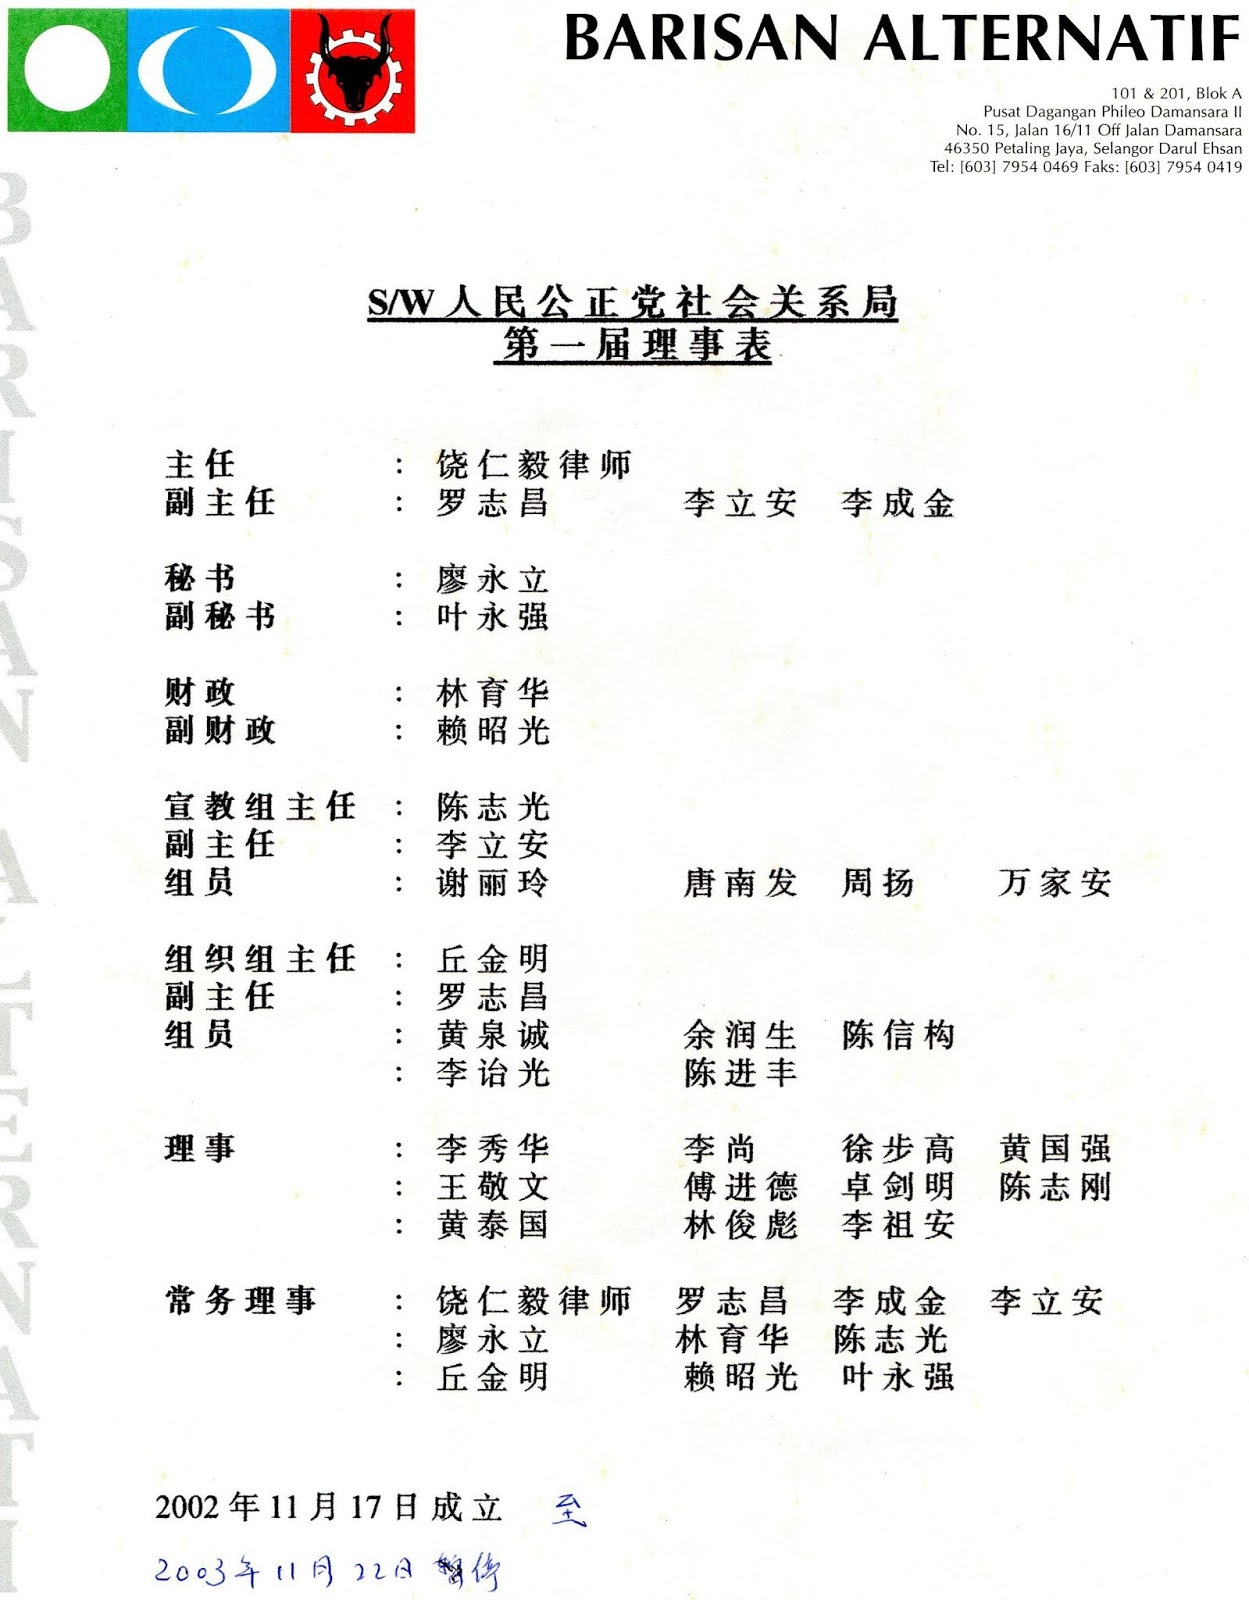 BARISAN ALTERNATIF
101 & 201, Blok A
Pusat Dagangan Phileo Damansara II
No. 15, Jalan 16/11 Off Jalan Damansara
46350 Petaling Jaya, Selangor Darul Ehsan
Tel: [603] 7954 0469 Faks: [603] 7954 0419
BARISAN ALTERNATI
S/W 人民公正党社会关系局
第一届理事表
主任 : 饶仁毅律师
副主任 : 罗志昌 李立安 李成金
秘书 : 廖永立
副秘书 : 叶永强
财政 : 林育华
副财政 : 赖昭光
宣教组主任 : 陈志光
副主任 : 李立安
组员 : 谢丽玲 唐南发 周扬 万家安
组织组主任 : 丘金明
副主任 : 罗志昌
组员 : 黄泉诚 余润生 陈信构
: 李诒光 陈进丰
理事 : 李秀华 李尚 徐步高 黄国强
: 王敬文 傅进德 卓剑明 陈志刚
: 黄泰国 林俊彪 李祖安
常务理事 : 饶仁毅律师 罗志昌 李成金 李立安
: 廖永立 林育华 陈志光
: 丘金明 赖昭光 叶永强
2002年11月17日成立 至
2003年11月22日 暂停